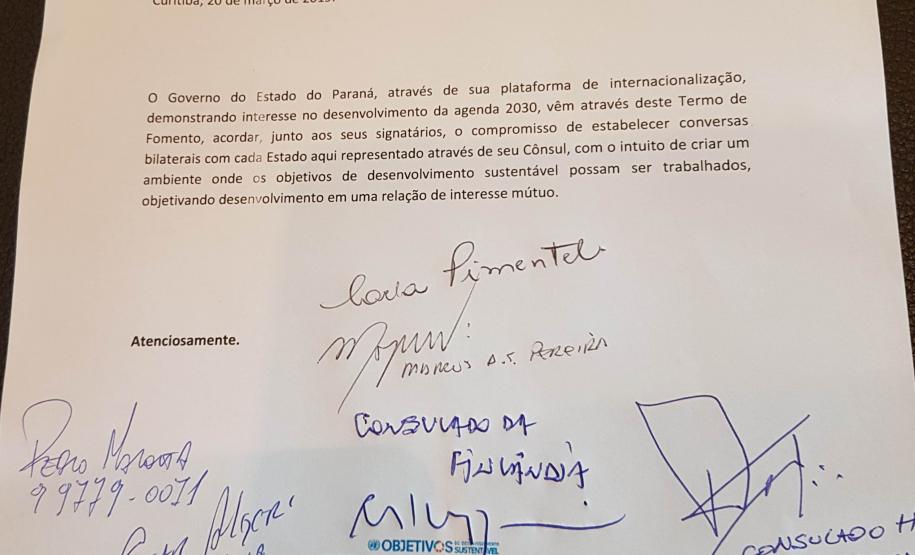 Curitiba, 20 de março de 2019.
O Governo do Estado do Paraná, através de sua plataforma de internacionalização,
demonstrando interesse no desenvolvimento da agenda 2030, vêm através deste Termo de
Fomento, acordar, junto aos seus signatários, o compromisso de estabelecer conversas
bilaterais com cada Estado aqui representado através de seu Cônsul, com o intuito de criar um
ambiente onde os objetivos de desenvolvimento sustentável possam ser trabalhados,
objetivando desenvolvimento em uma relação de interesse mútuo.
Pimentel
Atenciosamente.
MARCUS A.S. PEREIRA
CONSULADO DA
FINLÂNDIA
PEDRO
9 9779-0071
OBJETIVOS DE DESENVOLVIMENTO
SUSTENTÁVEL
CONSULADO H